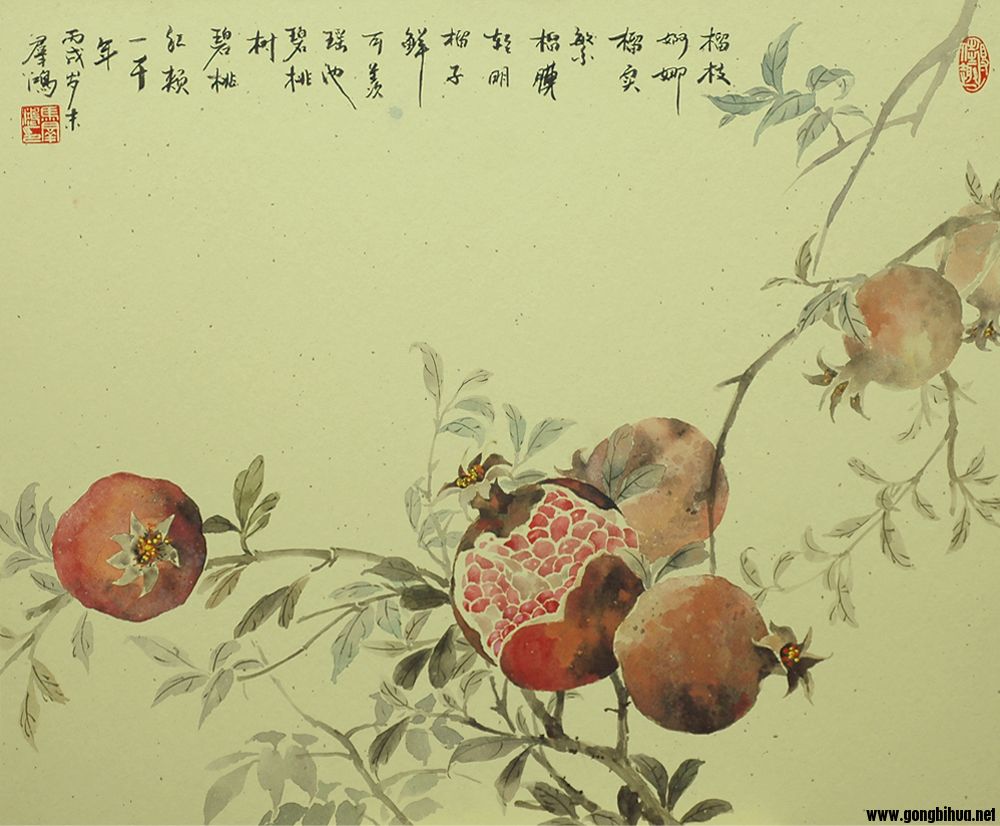 榴枝
婀娜
榴实
繁
榴膜
轻明
榴子
鲜
可羡
瑶池
碧桃
树
碧桃
红颊
一千
年
丙戌岁末
羣鸿
www.gongbihua.net